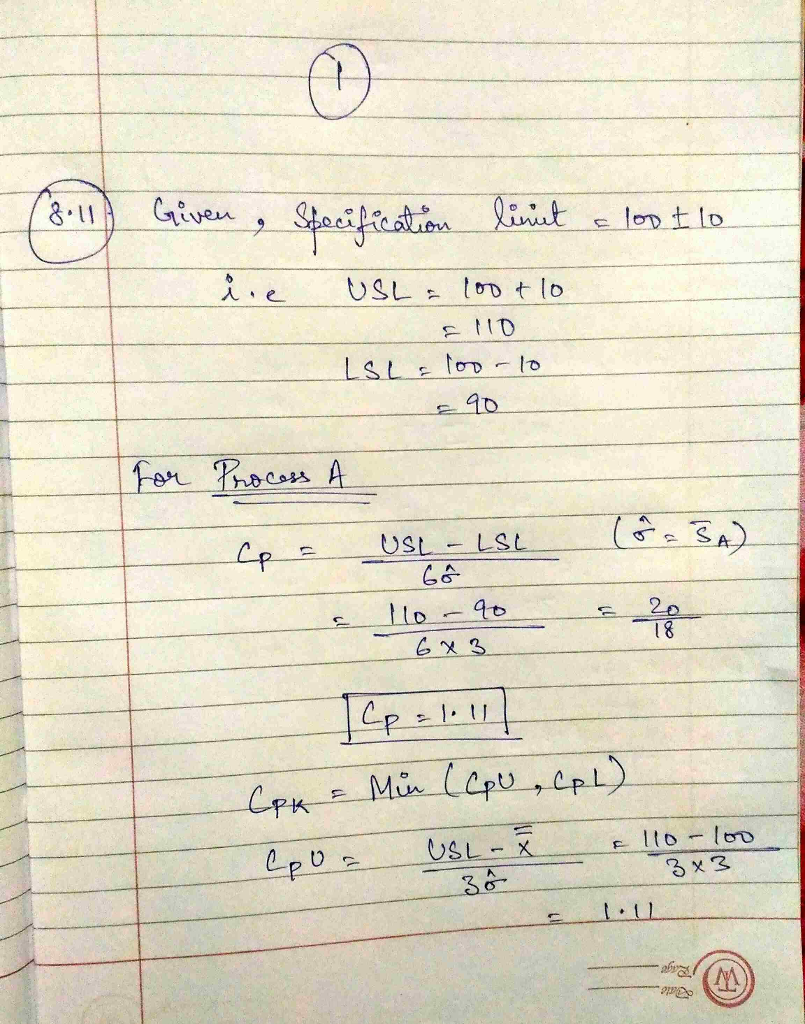 1
8.11 Given, Specification limit = 100 ± 10
i.e USL = 100 + 10
= 110
LSL = 100 - 10
= 90
For Process A
Cp = USL - LSL / 6σ̂ (σ̂ = S̄A)
= 110 - 90 / 6 x 3 = 20 / 18
Cp = 1.11
CPK = Min (CpU, CpL)
CpU = USL - x̿ / 3σ̂ = 110 - 100 / 3 x 3
= 1.11
Page
Date